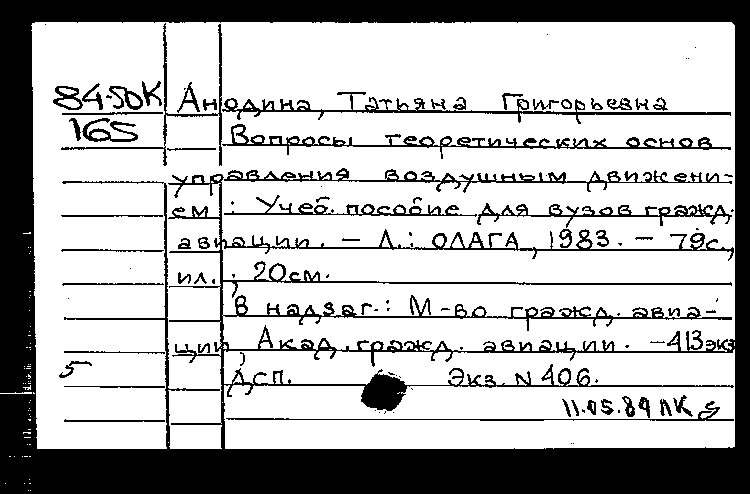 84-50К Анодина, Татьяна Григорьевна
165 Вопросы теоретических основ
управления воздушным движени-
ем : Учеб. пособие для вузов гражд.
авиации. – Л. : ОЛАГА, 1983. – 79с.,
ил. ; 20см.
В надзаг.: М-во гражд. авиа-
ции, Акад. гражд. авиации. – 413экз
5 ДСП. Экз. N 406.
11.05.89 ЛК